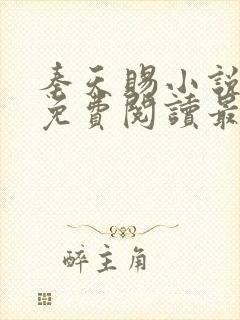 奉天賜小說
免費閱讀最
醉主角